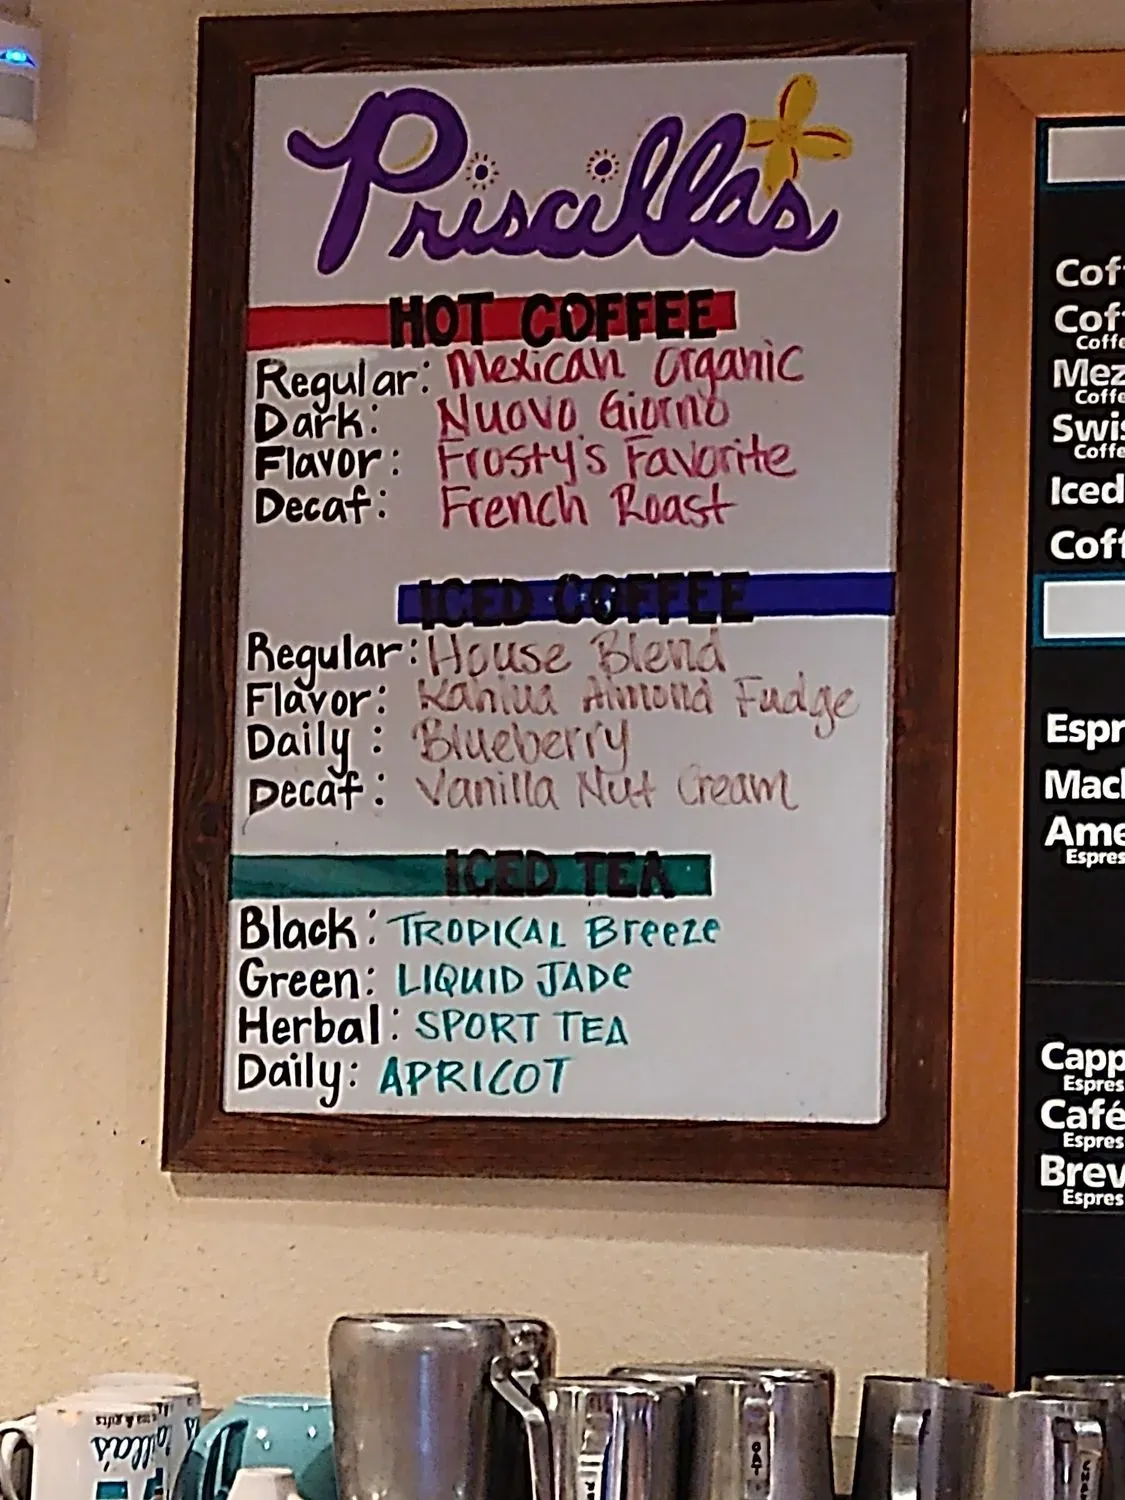 Priscillas
HOT COFFEE
Regular: Mexican Organic
Dark: Nuovo Giorno
Flavor: Frosty's Favorite
Decaf: French Roast
ICED COFFEE
Regular: House Blend
Flavor: Kahlua Almond Fudge
Daily: Blueberry
Decaf: Vanilla Nut Cream
ICED TEA
Black: TROPICAL Breeze
Green: LIQUID JADe
Herbal: SPORT TEA
Daily: APRICOT
Coff
Coff
Coffe
Mez
Coffe
Swis
Coffe
Iced
Coff
Espr
Mac
Ame
Espres
Capp
Espres
Café
Espres
Brev
Espres
tea & gifts
OAT